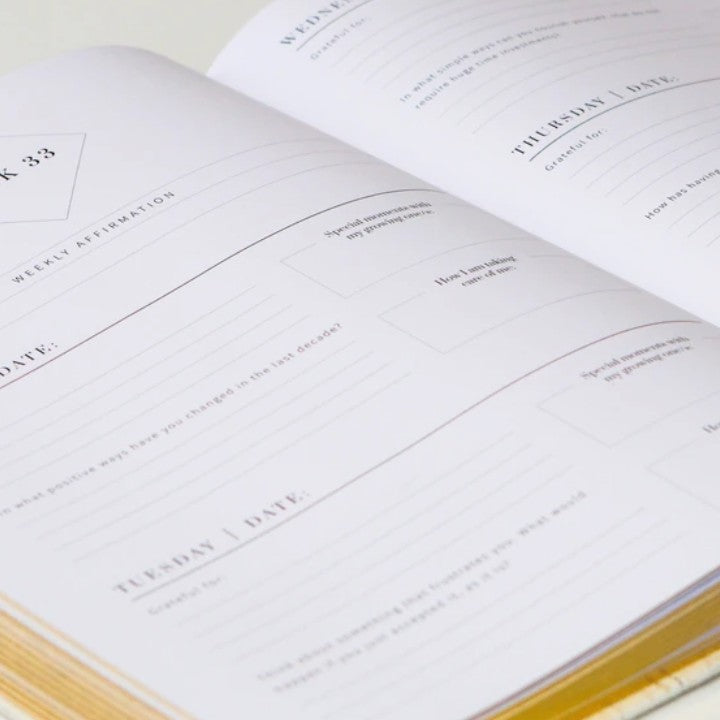 K 33
WEEKLY AFFIRMATION
DATE:
Special moments with
my growing one/s.
How I am taking
care of me.
In what positive ways have you changed in the last decade?
TUESDAY | DATE:
Grateful for:
Special moments with
my growing one/s.
Think about something that frustrates you. What would
happen if you just accepted it, as it is?
Grateful for:
In what simple ways can you nourish yourself that do not
require huge time investments?
THURSDAY | DATE:
Grateful for:
How has having